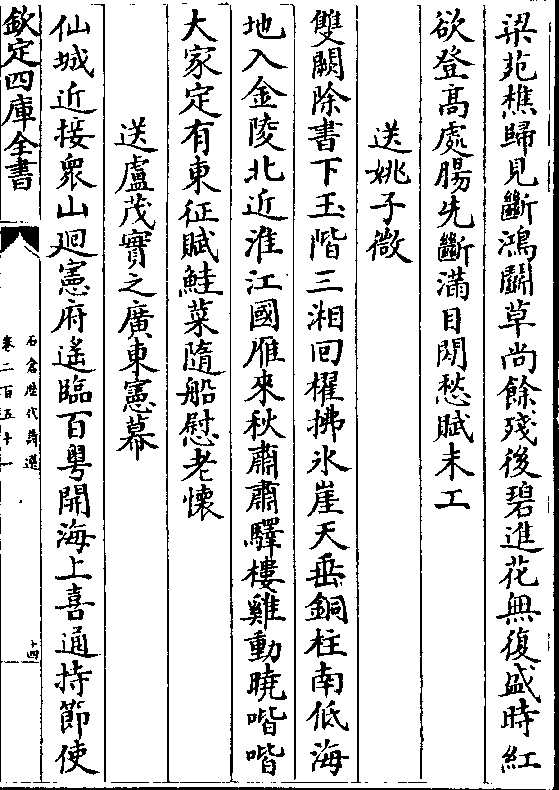 梁苑樵歸見斷鴻鬭草尚餘殘後碧進花無復盛時紅
欲登髙處腸先斷滿目閒愁賦未工
送姚子微
雙闕除書下玉階三湘回櫂拂氷崖天垂銅柱南低海
地入金陵北近淮江國雁來秋肅肅驛樓雞動曉喈喈
大家定有東征賦鮭菜隨船慰老懷
送盧茂實之廣東憲幕
仙城近接衆山廻憲府遙臨百粤開海上喜通持節使
欽定四庫全書
石倉歷代詩選
卷二百五十一
十四